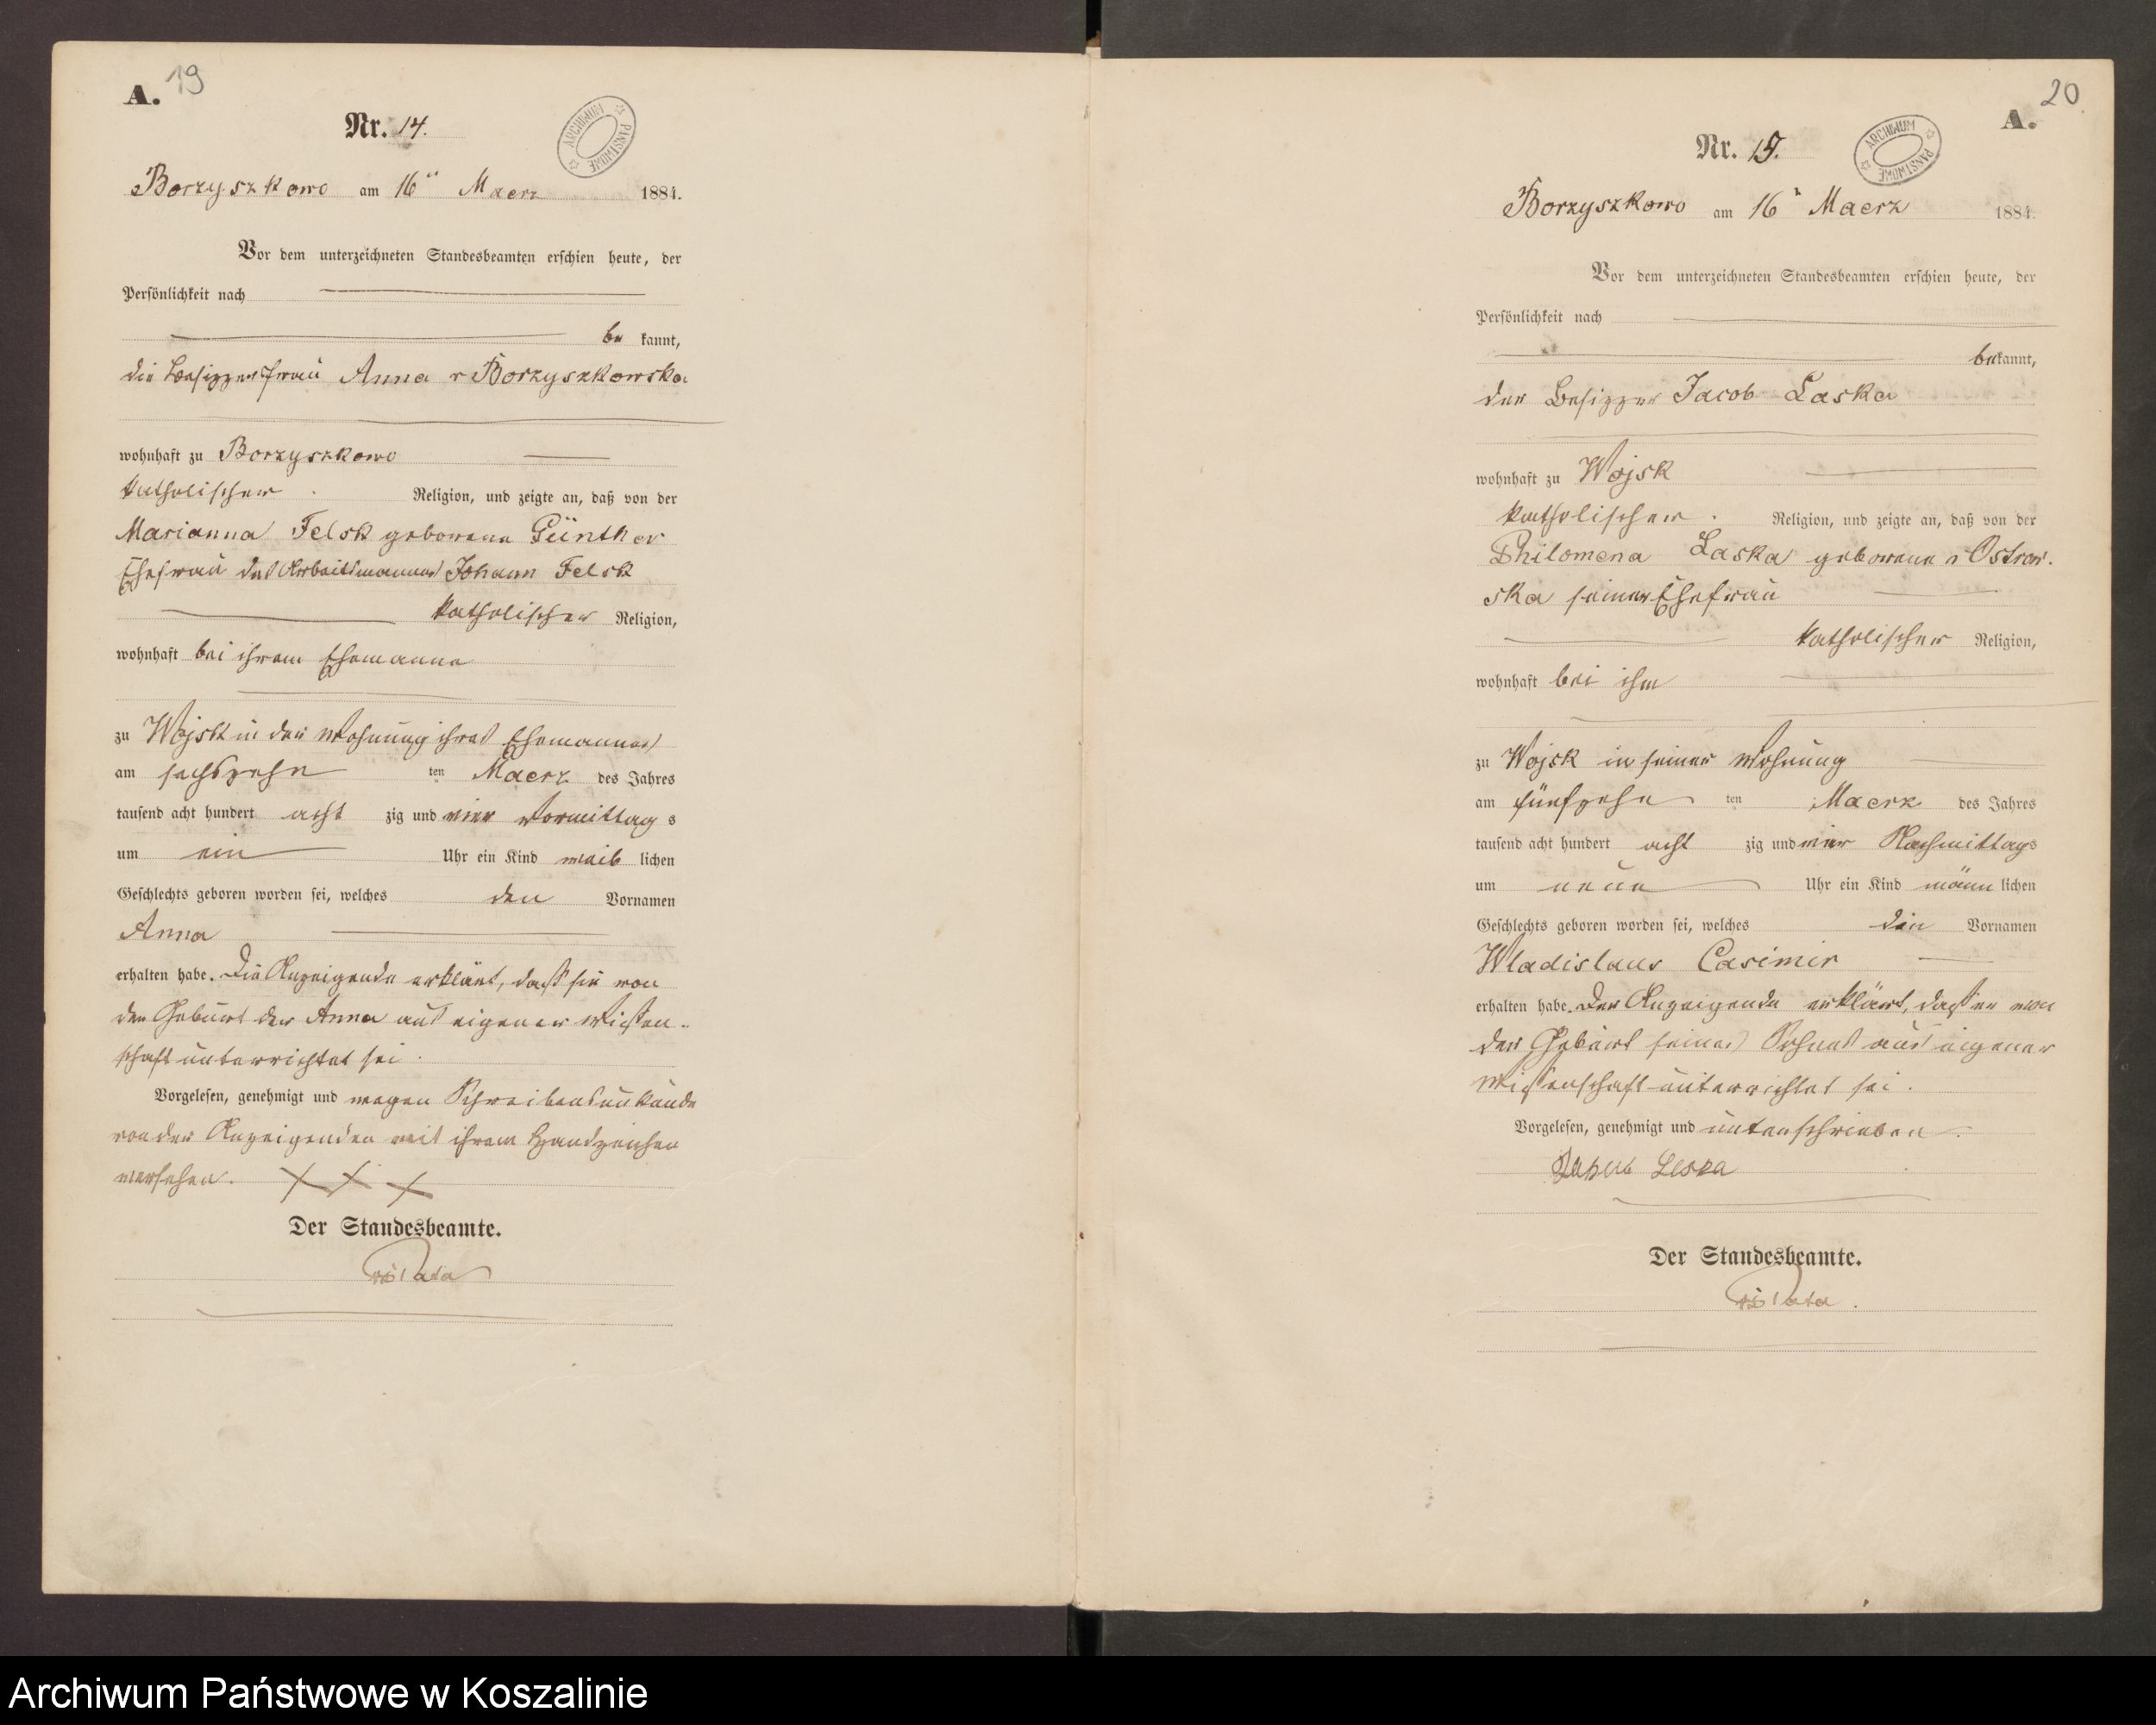 A. 19
Nr. 14.
ARCHIWUM PAŃSTWOWE
Borzyszkowo am 16ⁿ Maerz 1884.
Vor dem unterzeichneten Standesbeamten erschien heute, der
Persönlichkeit nach
be kannt,
die Besitzerfrau Anna v Borzyszkowska
wohnhaft zu Borzyszkowo
katholischer Religion, und zeigte an, daß von der
Marianna Felsk geborene Günther
Ehefrau des Arbeitsmannes Johann Felsk
katholischer Religion,
wohnhaft bei ihrem Ehemanne
zu Wojsk in der Wohnung ihres Ehemannes
am sechszehn ten Maerz des Jahres
tausend acht hundert acht zig und vier Vormittag s
um ein Uhr ein Kind weib lichen
Geschlechts geboren worden sei, welches den Vornamen
Anna
erhalten habe. Die Anzeigende erklärt, daß sie von
der Geburt der Anna aus eigener Wissen-
schaft unterrichtet sei.
Vorgelesen, genehmigt und wegen Schreibensunkunde
von der Anzeigenden mit ihrem Handzeichen
versehen. X X X
Der Standesbeamte.
20
A.
Nr. 15.
ARCHIWUM PAŃSTWOWE
Borzyszkowo am 16ⁿ Maerz 1884.
Vor dem unterzeichneten Standesbeamten erschien heute, der
Persönlichkeit nach
bekannt,
der Besitzer Jacob Laska
wohnhaft zu Wojsk
katholischer Religion, und zeigte an, daß von der
Philomena Laska geborene v Ostrow-
ska seiner Ehefrau
katholischer Religion,
wohnhaft bei ihm
zu Wojsk in seiner Wohnung
am fünfzehn ten Maerz des Jahres
tausend acht hundert acht zig und vier Nachmittags
um neun Uhr ein Kind männ lichen
Geschlechts geboren worden sei, welches die Vornamen
Wladislaus Casimir
erhalten habe. Der Anzeigende erklärt, daß er von
der Geburt seines Sohnes aus eigener
Wissenschaft unterrichtet sei.
Vorgelesen, genehmigt und unterschrieben
Jakub Leska
Der Standesbeamte.
Archiwum Państwowe w Koszalinie